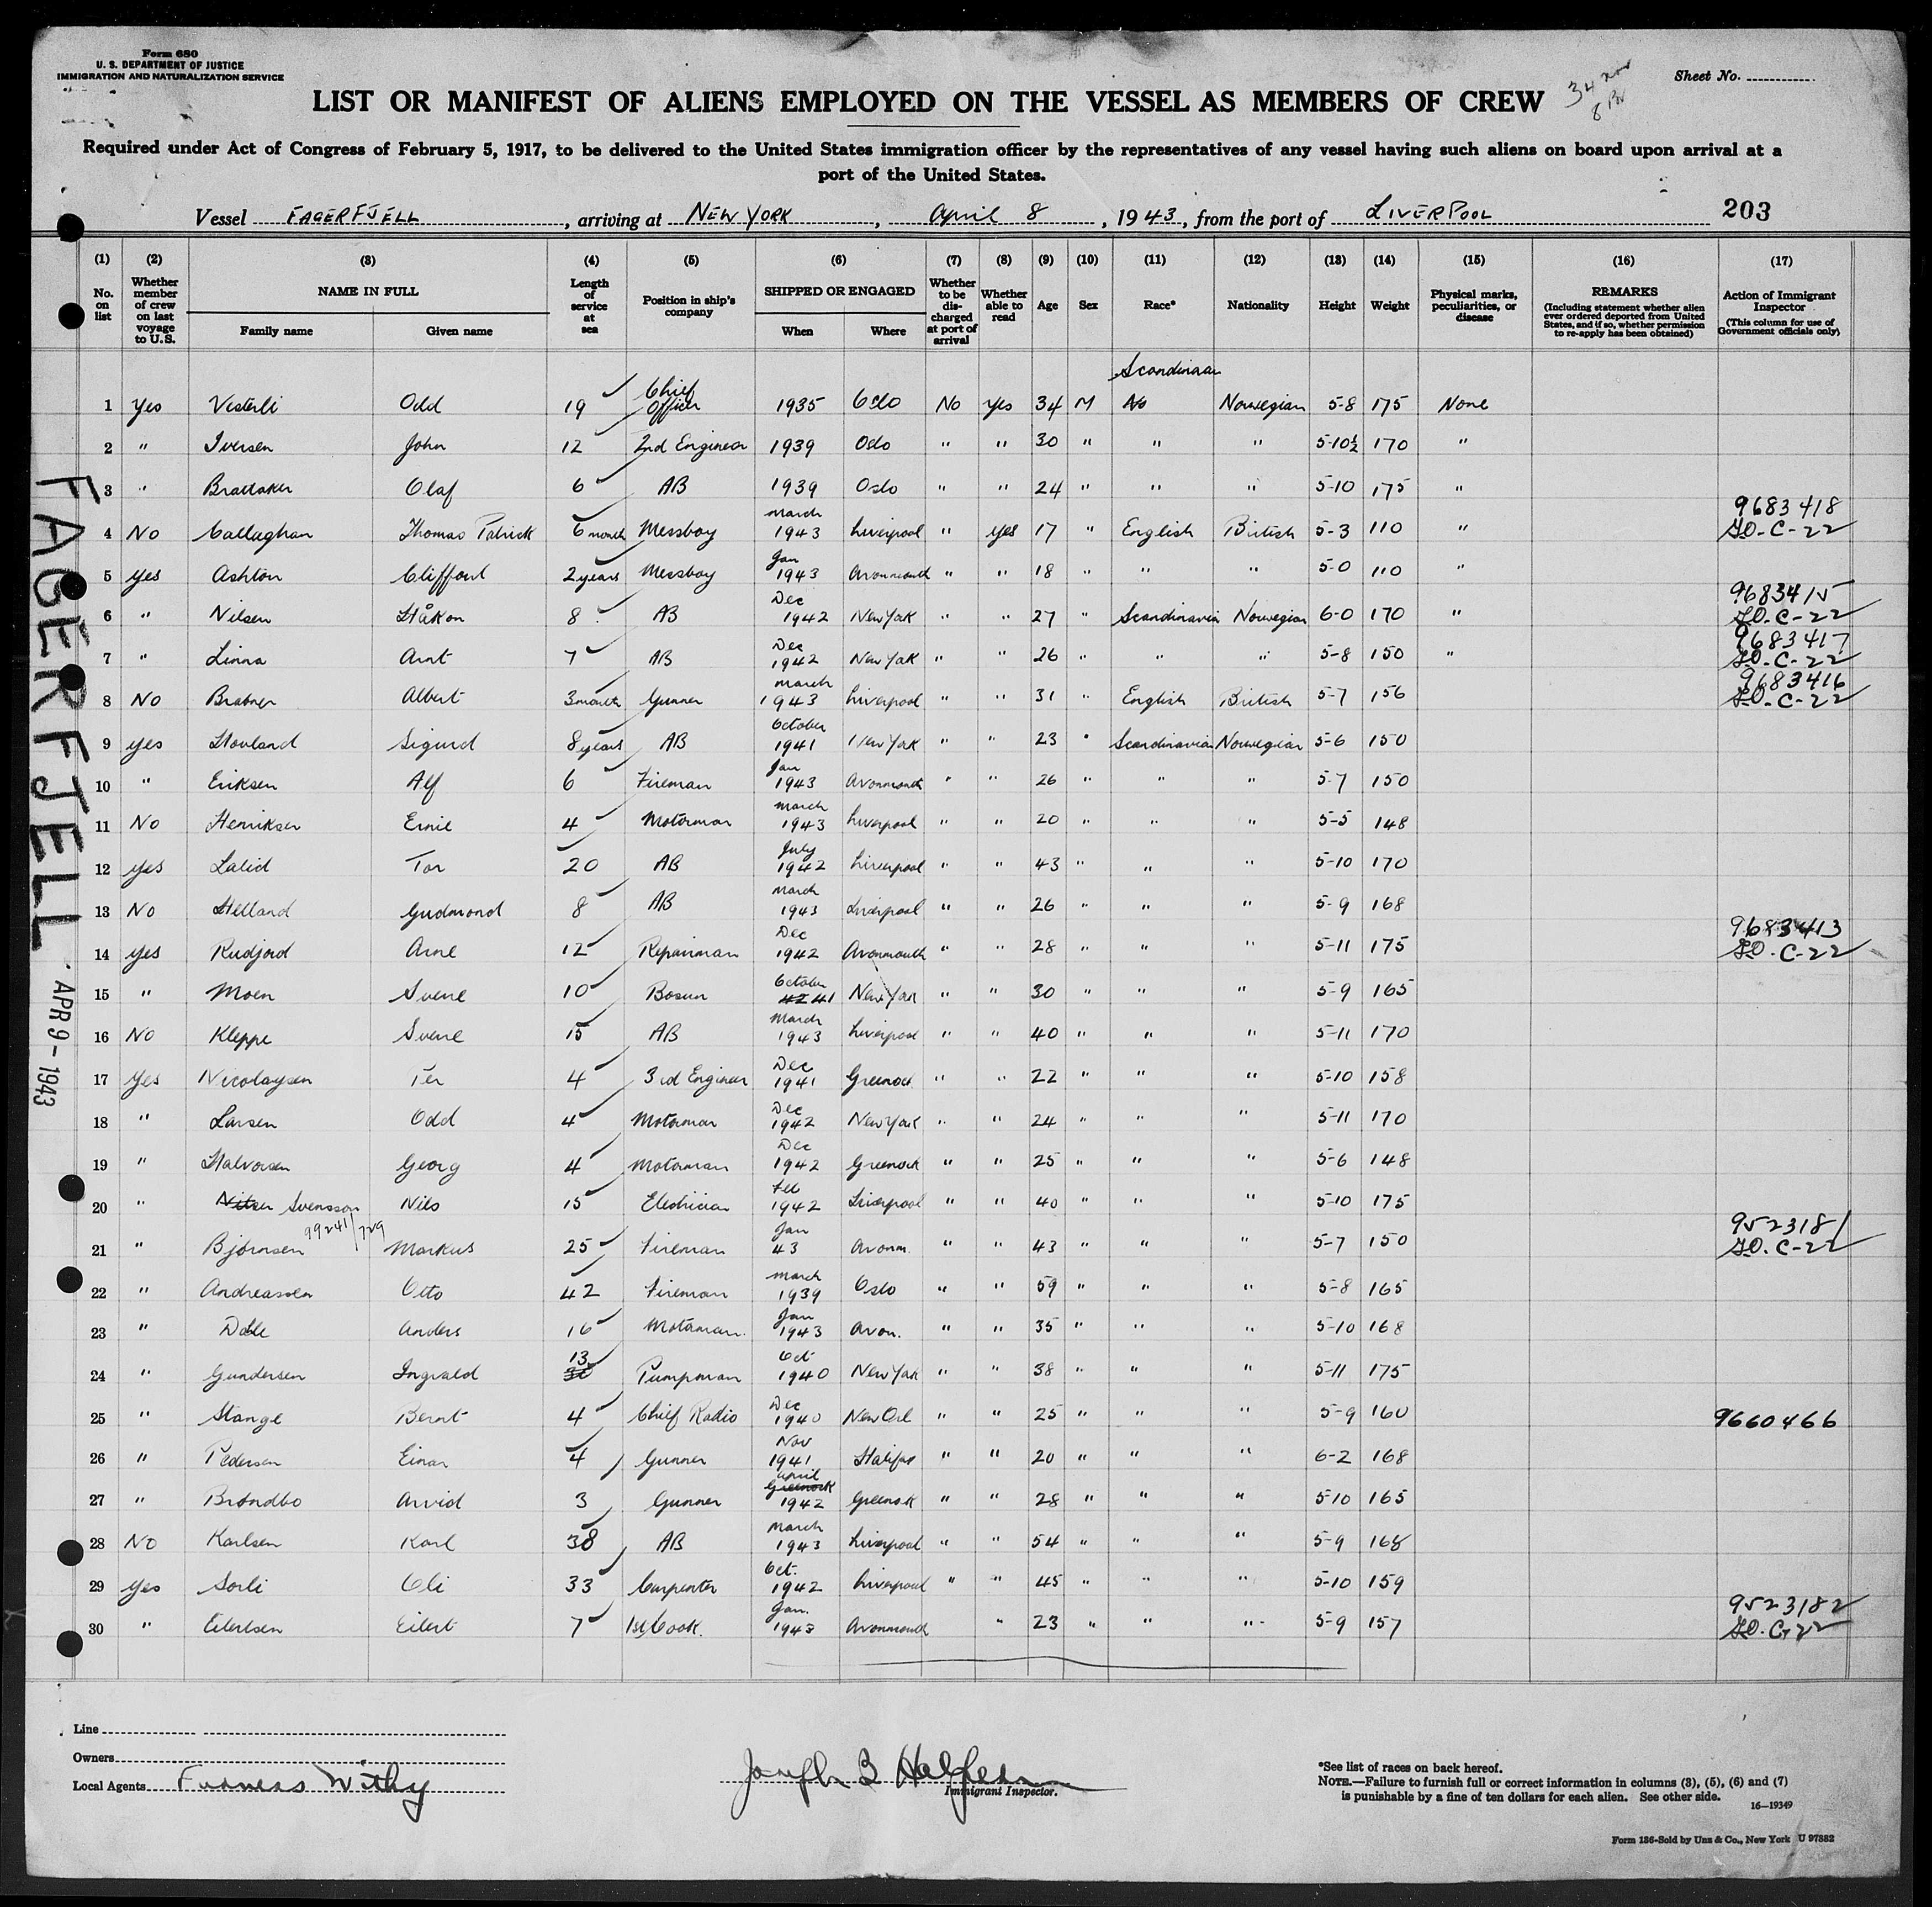 Form 680
U. S. DEPARTMENT OF JUSTICE
IMMIGRATION AND NATURALIZATION SERVICE
Sheet No.
LIST OR MANIFEST OF ALIENS EMPLOYED ON THE VESSEL AS MEMBERS OF CREW
34
8 Br
Required under Act of Congress of February 5, 1917, to be delivered to the United States immigration officer by the representatives of any vessel having such aliens on board upon arrival at a
port of the United States.
Vessel FAGERFJELL, arriving at NEW YORK, April 8, 1943, from the port of LIVERPOOL
203
(1) No. on list
(2) Whether member of crew on last voyage to U.S.
(3) NAME IN FULL Family name Given name
(4) Length of service at sea
(5) Position in ship's company
(6) SHIPPED OR ENGAGED When Where
(7) Whether to be discharged at port of arrival
(8) Whether able to read
(9) Age
(10) Sex
(11) Race*
(12) Nationality
(13) Height
(14) Weight
(15) Physical marks, peculiarities, or disease
(16) REMARKS (Including statement whether alien ever ordered deported from United States, and if so, whether permission to re-apply has been obtained)
(17) Action of Immigrant Inspector (This column for use of Government officials only)
1 Yes Vesterli Odd 19 Chief Officer 1935 Oslo No Yes 34 M Scandinavian No Norwegian 5-8 175 None
2 " Iversen John 12 2nd Engineer 1939 Oslo " " 30 " " " 5-10½ 170 "
3 " Brattaker Olaf 6 AB 1939 Oslo " " 24 " " " 5-10 175 "
4 No Callaghan Thomas Patrick 6 month Messboy March 1943 Liverpool " Yes 17 " English British 5-3 110 " 9683418 C-22
5 Yes Ashton Clifford 2 years Messboy Jan 1943 Avonmouth " " 18 " " " 5-0 110 "
6 " Nilsen Håkon 8 AB Dec 1942 New York " " 27 " Scandinavia Norwegian 6-0 170 " 9683415 C-22
7 " Linna Arnt 7 AB Dec 1942 New York " " 26 " " " 5-8 150 " 9683417 C-22
8 No Brabner Albert 3 month Gunner March 1943 Liverpool " " 31 " English British 5-7 156 9683416 C-22
9 Yes Hovland Sigurd 8 years AB October 1941 New York " " 23 " Scandinavian Norwegian 5-6 150
10 " Eriksen Alf 6 Fireman Jan 1943 Avonmouth " " 26 " " " 5-7 150
11 No Henriksen Ernie 4 Motorman March 1943 Liverpool " " 20 " " " 5-5 148
12 Yes Lalid Tor 20 AB July 1942 Liverpool " " 43 " " " 5-10 170
13 No Helland Gudmond 8 AB March 1943 Liverpool " " 26 " " " 5-9 168
14 Yes Rudjord Arne 12 Repairman Dec 1942 Avonmouth " " 28 " " " 5-11 175 9683413 C-22
15 " Moen Sverre 10 Bosun October 41 New York " " 30 " " " 5-9 165
16 No Kleppe Sverre 15 AB March 1943 Liverpool " " 40 " " " 5-11 170
17 Yes Nicolaysen Per 4 3rd Engineer Dec 1941 Greenock " " 22 " " " 5-10 158
18 " Larsen Odd 4 Motorman Dec 1942 New York " " 24 " " " 5-11 170
19 " Halvorsen Georg 4 Motorman Dec 1942 Greenock " " 25 " " " 5-6 148
20 " Svensson Nils 15 Electrician Feb 1942 Liverpool " " 40 " " " 5-10 175
99241/729
21 " Bjørnsen Markus 25 Fireman Jan 43 Avonm. " " 43 " " " 5-7 150 9523181 C-22
22 " Andreassen Otto 42 Fireman March 1939 Oslo " " 59 " " " 5-8 165
23 " Dahle Anders 16 Motorman. Jan 1943 Avon. " " 35 " " " 5-10 168
24 " Gundersen Ingvald 13 Pumpman Oct 1940 New York " " 38 " " " 5-11 175
25 " Stange Bernt 4 Chief Radio Dec 1940 New Orl " " 25 " " " 5-9 160 9660466
26 " Pedersen Einar 4 Gunner Nov 1941 Halifax " " 20 " " " 6-2 168
27 " Brøndbo Arvid 3 Gunner April Greenock 1942 Greenock " " 28 " " " 5-10 165
28 No Karlsen Karl 38 AB March 1943 Liverpool " " 54 " " " 5-9 168
29 Yes Sorli Oli 33 Carpenter Oct. 1942 Liverpool " " 45 " " " 5-10 159
30 " Eilertsen Eilert 7 1st Cook. Jan. 1943 Avonmouth " 23 " " " 5-9 157 9523182 C-22
FAGERFJELL
APR 9 - 1943
Line
Owners
Local Agents Furness Withy
Immigrant Inspector.
*See list of races on back hereof.
NOTE.—Failure to furnish full or correct information in columns (3), (5), (6) and (7)
is punishable by a fine of ten dollars for each alien. See other side.
16—19349
Form 186-Sold by Unz & Co., New York U 97882